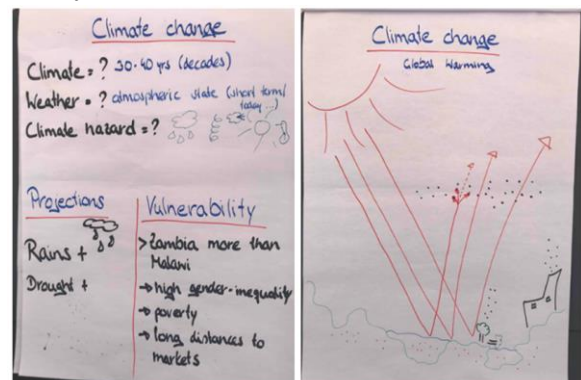 Climate change
Climate = ? 30-40 yrs (decades)
Weather = ? atmospheric state (short term/
today...)
Climate hazard = ?
Projections
Rains +
Drought +
Vulnerability
> Zambia more than
Malawi
→ high gender-inequality
→ poverty
→ long distances to
markets
Climate change
Global Warming